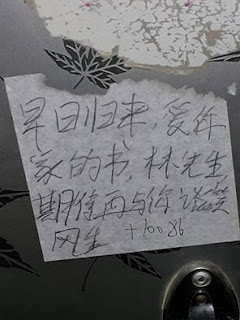 早日归来,爱你
家的书,林先生
期待再与你谈笑
风生 +10086